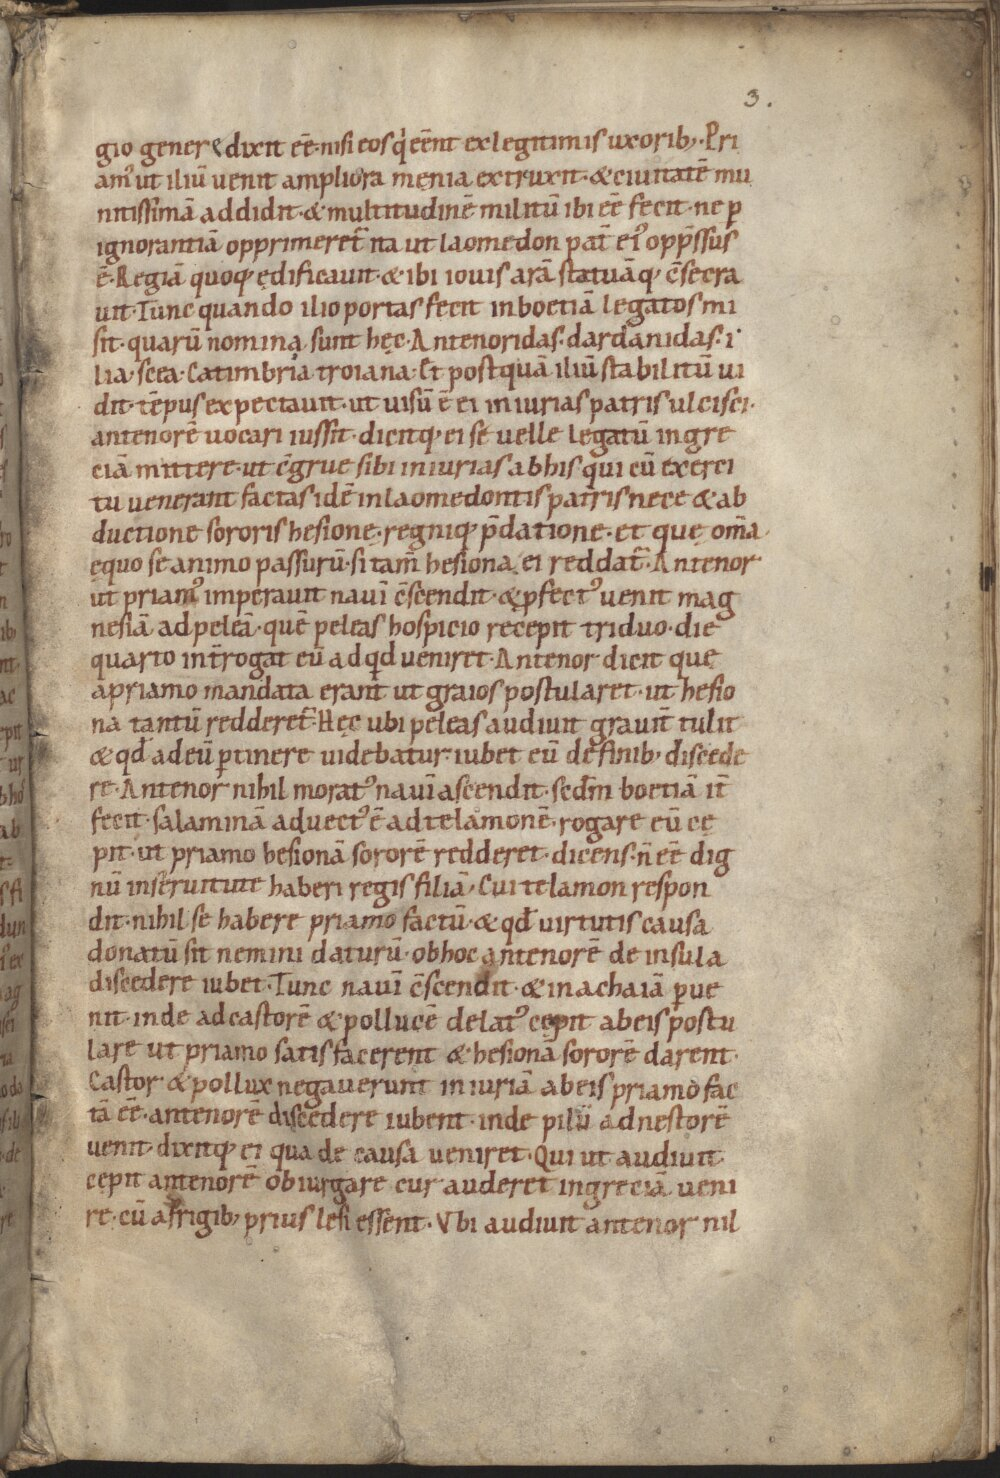 3.
gio genere dixit eē·nisi eos q̇ eēnt ex legitimis uxorib;· Pri
am᷒ ut iliū uenit ampliora męnia extruxit·&ciuitatē mu
nitissimā addidit·&multitudinē militū ibi eē fecit·ne ꝑ
ignorantiā opprimeret̄ ita ut laomedon pat̄ ei᷒ opp̄ssus
ē·Regiā quoq; ędificauit·&ibi iouis arā statuāq; c̄secra
uit·Tunc quando ilio portas fecit inboetiā legatos mi
sit·quarū nomina sunt hęc·Antenoridas·dardanidas·i
lia·scea·Catimbria troiana·Et postquā iliū stabilitū ui
dit·tēpus expectauit·ut uisū ē ei iniurias patris ulcisci·
antenorē uocari iussit·dicitq; ei se uelle legatū ingre
ciā mittere·ut c̄grue sibi iniurias abhis qui cū exerci
tu uenerant factas idē inlaomedontis patris nece &ab
ductione sororis hesionę·regniq; p̄datione·et quę om̄a
ęquo se animo passurū·si tam̄ hesiona ei reddat̄·Antenor
ut priam᷒ imperauit nauī c̄scendit·&ꝓfect᷒ uenit mag
nesiā ad peleā·quē peleas hospicio recepit triduo·die
quarto int̄rogat eū ad qd̄ ueniret·Antenor dicit quę
apriamo mandata erant ut graios postularet·ut hesio
na tantū redderet̄·Hęc ubi peleas audiuit grauit̄ tulit
&qd̄ adeū ꝑtinere uidebatur·iubet eū definib; discede
re·Antenor nihil morat᷒ nauī ascendit·secd̄m boetiā it̄
fecit·salaminā aduect᷒ ē adtelamonē·rogare eū cę
pit·ut priamo hesionā sororē redderet·dicens·n̄ eē dig
nū inseruitute haberi regis filiā·Cui telamon respon
dit·nihil se habere priamo factū·&qd̄ uirtutis causa
donatū sit nemini daturū·obhoc antenorē de insula
discedere iubet·Tunc nauī c̄scendit·&inachaiā ꝑue
nit·inde adcastorē &pollucē delat᷒ cępit abeis postu
lare ut priamo satisfacerent &hesionā sororē darent·
Castor &pollux negauerunt iniuriā abeis priamo fac
tā eē·antenorē discedere iubent·inde pilū adnestorē
uenit·dixitq; ei qua de causa ueniret·Qui ut audiuit
cepit antenorē obiurgare cur auderet ingreciā ueni
re·cū afrigib; prius lesi essent·Vbi audiuit antenor nil